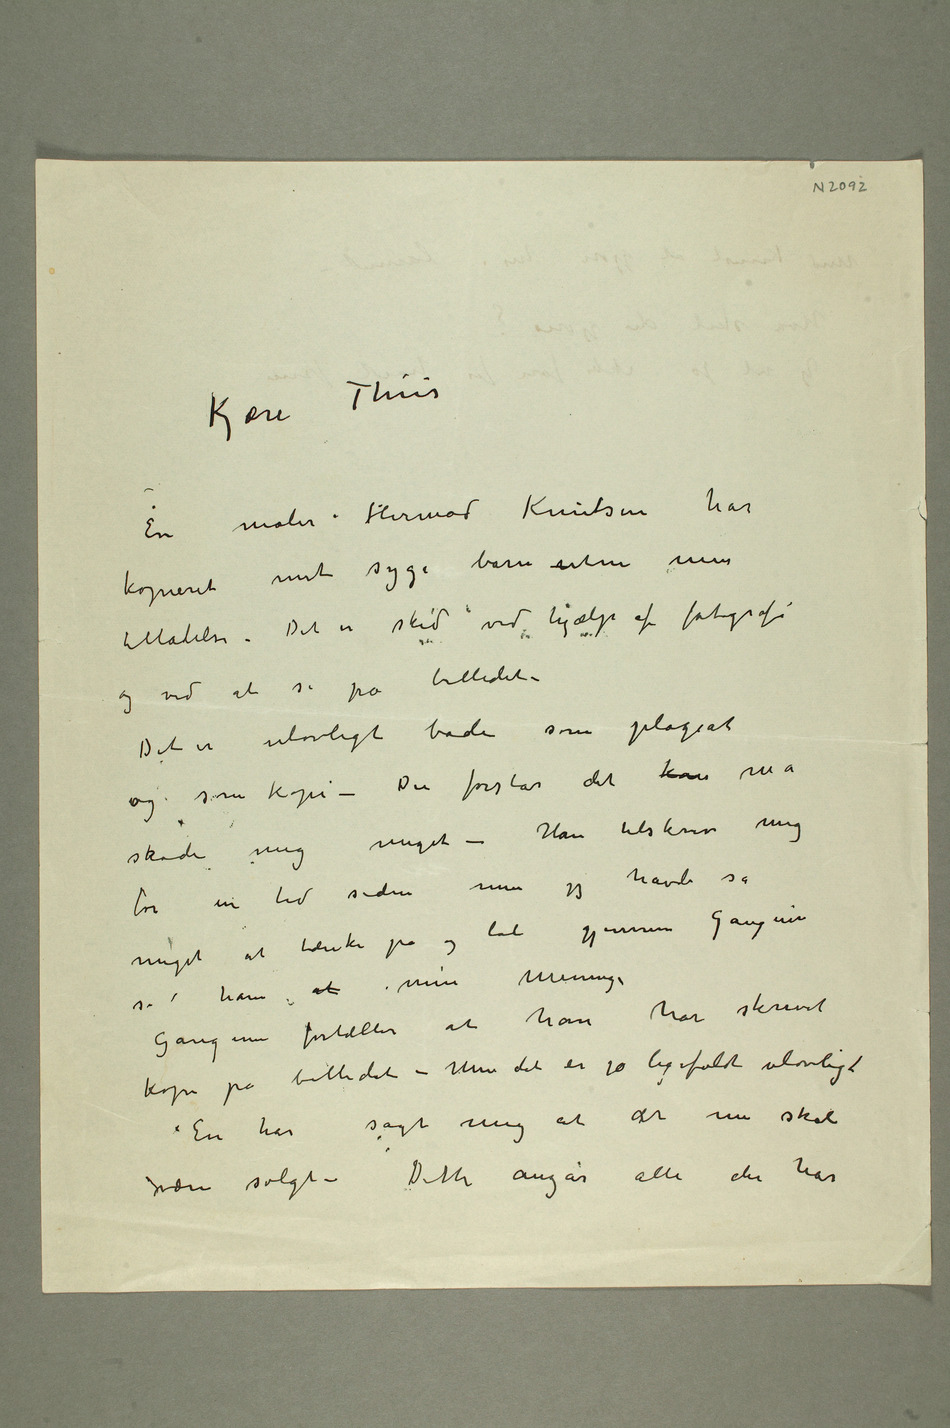 N2092
Kjære Thiis
En maler Hermod Knutsen har
kopieret mit syge barn uten min
tilladelse. Det er skéd ved hjælp af fotografi
og ved at se på billedet –
Det er ulovligt både som plagiat
og som kopi – Du forstår det kan må
skade mig meget – Han tilskrev mig
for en tid siden men jeg havde så
meget at tænke på og lod gjennem Gauguin
si ham at min mening
Gauguin fortæller at han har skrevet
kopi på billedet – Men det er jo ligefuldt ulovligt
En har sagt mig at det nu skal
være solgt – Dette angår alle der har